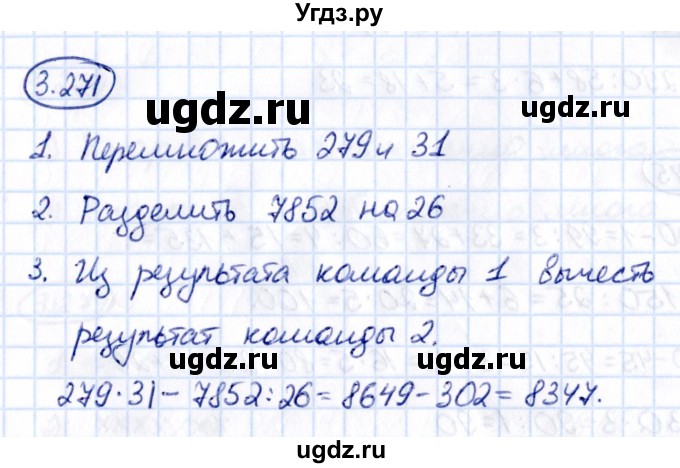 Угдз.ру
3.271
ugdz.ru
1. Перемножить 279 и 31
2. Разделить 7852 на 26
ugdz.ru
3. Из результата команды 1 вычесть
результат команды 2.
ugdz.ru ugdz.ru
279·31 - 7852:26 = 8649 - 302 = 8347.
ugdz.ru